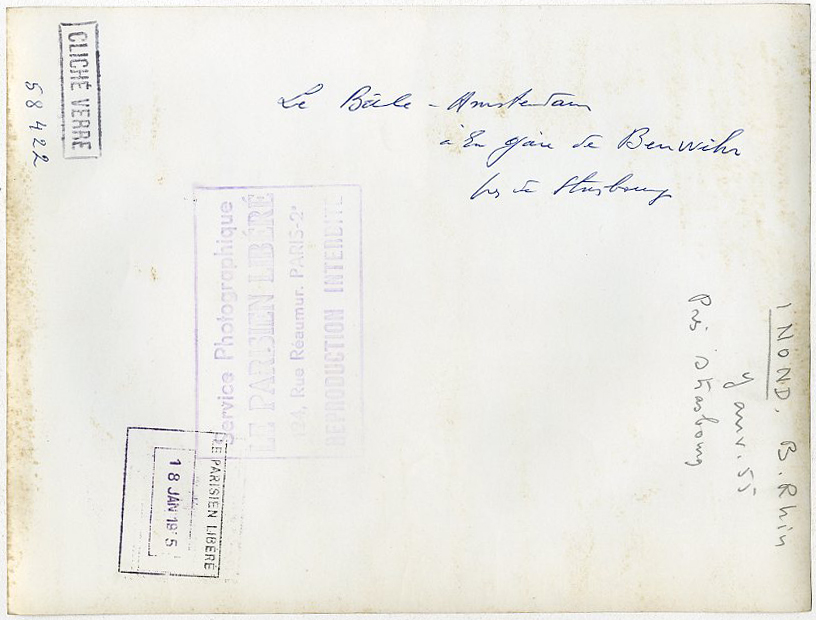 CLICHÉ VERRE
58422
Le Bâle - Amsterdam
à En gare de Benwihr
près de Strasbourg
Service Photographique
LE PARISIEN LIBÉRÉ
124, Rue Réaumur. PARIS-2e
REPRODUCTION INTERDITE
INOND. B. Rhin
janv. 55
Près Strasbourg
LE PARISIEN LIBÉRÉ
18 JAN 195